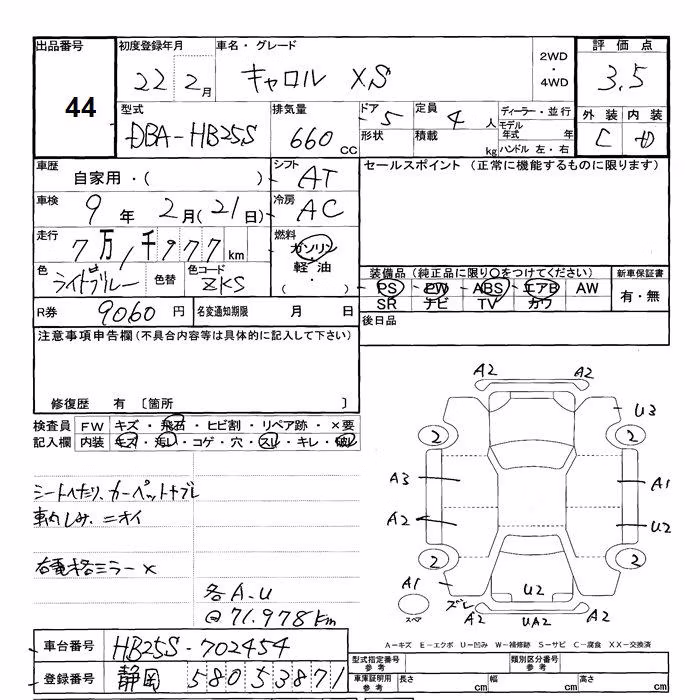 出品番号 初度登録年月 車名・グレード 2WD・4WD 評価点
44 22 2月 キャロル XS 3.5
型式 排気量 ドア 5 定員 4人 ディーラー・並行 外装 内装
DBA-HB25S 660 CC 形状 積載 kg モデル年式 年 C D
ハンドル 左・右
車歴 シフト セールスポイント (正常に機能するものに限ります)
自家用・( ) AT
車検 9年 2月(21日) 冷房 AC
走行 7万1千977km 燃料 ガソリン
軽油
( ・ )
色 ライトブルー 色替 色コード ZKS
装備品 (純正品に限り○をつけてください) 新車保証書
PS PW ABS エアB AW 有・無
SR ナビ TV カワ
R券 9060円 名変通知期限 月 日 後日品
注意事項申告欄(不具合内容等は具体的に記入して下さい)
修復歴 有 〔箇所 〕
検査員 FW キズ・飛石・ヒビ割・リペア跡・×要
記入欄 内装 キズ・汚レ・コゲ・穴・スレ・キレ・破レ
シートへたり、カーペットヤブレ
車内しみ、ニオイ
右電格ミラー×
各A.U
@71,978km
A2 A2
U3
2 2
A3 A1
A2 U2
2 2
A1 U2
スペア ズレ A2 UA2 A2
A-キズ E-エクボ U-凹み W-補修跡 S-サビ C-腐食 XX-交換済
車台番号 HB25S-702454
登録番号 静岡 580 5 3871
型式指定番号 参考 類別区分番号 参考
車庫証明用 参考 長さ cm 幅 cm 高さ cm